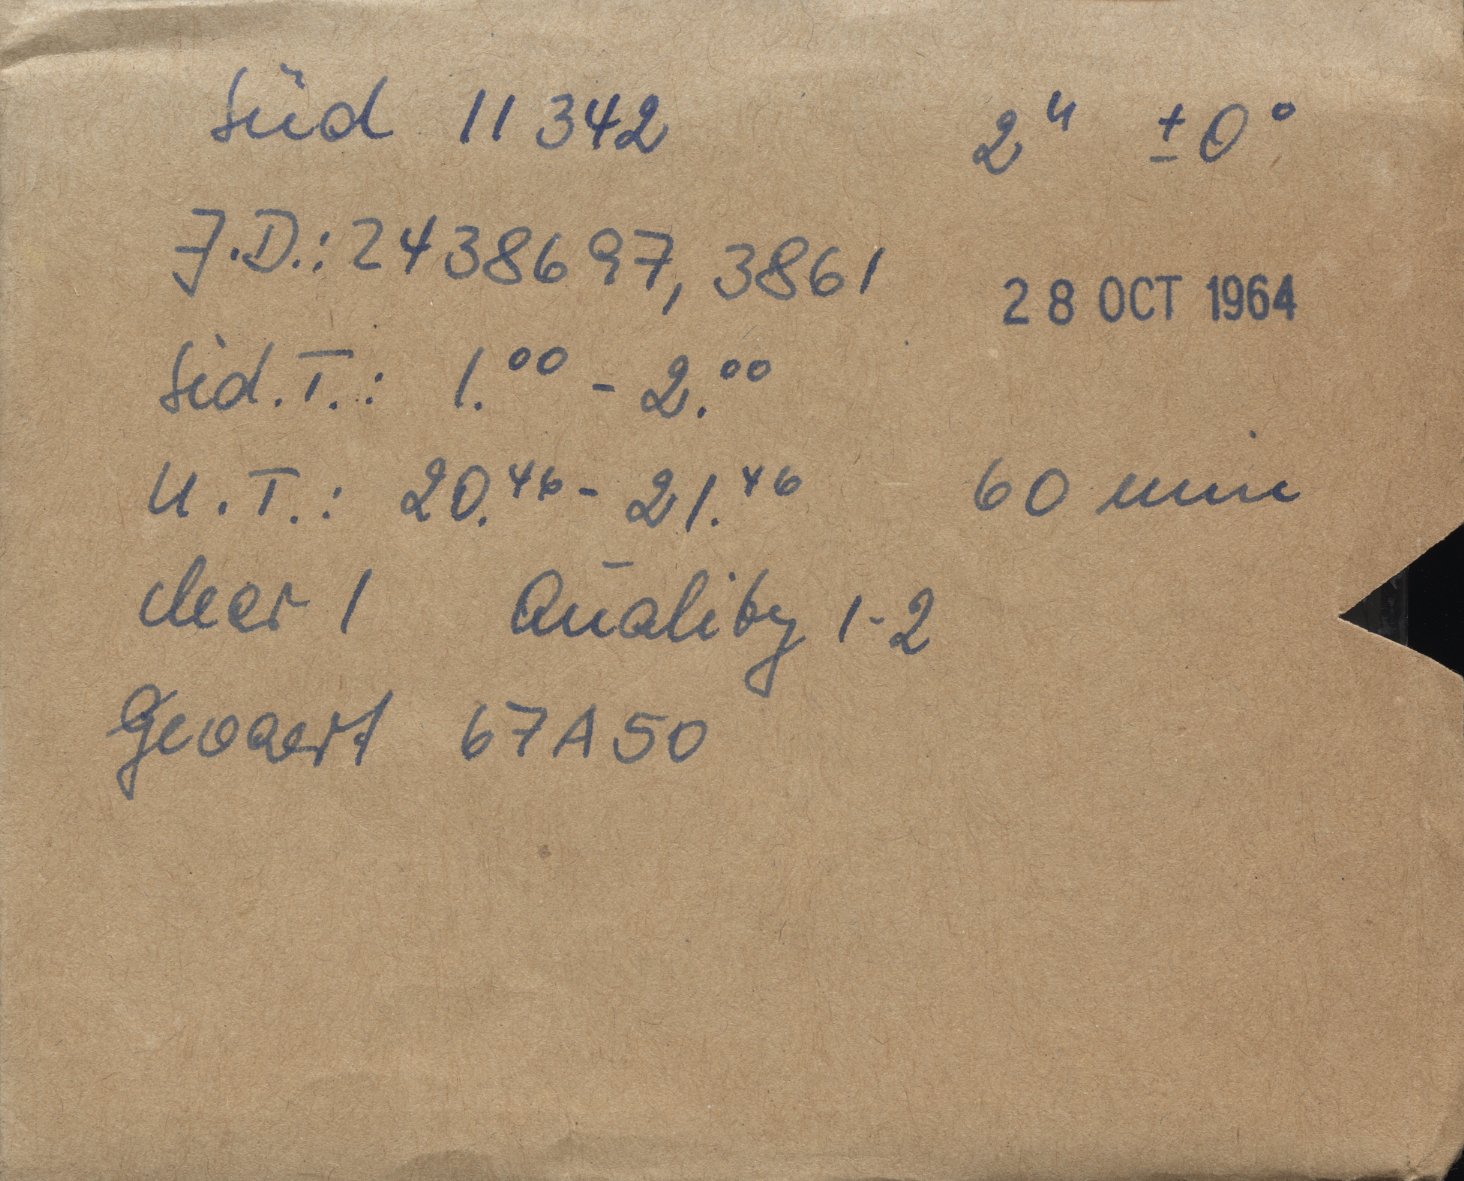 Süd 11342 2ʰ ±0°
J.D.: 2438697,3861
28 OCT 1964
Sid.T.: 1.⁰⁰ - 2.⁰⁰
U.T.: 20.⁴⁶ - 21.⁴⁶ 60 min
clear 1 Quality 1-2
Gevaert 67A50